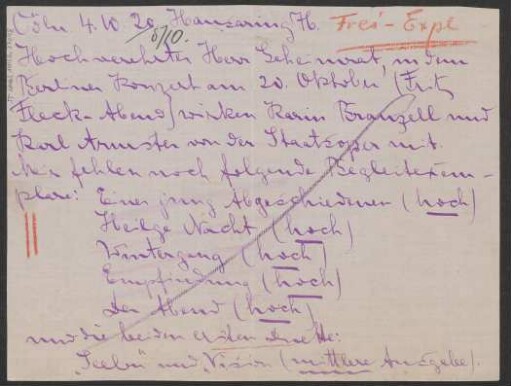 Cöln 4.10.20. Hansaring 76. Frei-Expl
6/10.
Hochverehrter Herr Geheimrat, in dem
Berliner Konzert am 20. Oktober (Fritz
Fleck-Abend) wirken Karin Branzell und
Karl Armster von der Staatsoper mit.
Mir fehlen noch folgende Begleitexem-
plare: Einer jung Abgeschiedenen (hoch)
Heilge Nacht (hoch)
Wintergang (hoch)
Empfindung (hoch)
Der Abend (hoch)
und die beiden Duette:
"Seelen" und "Vision" (mittlere Ausgabe).